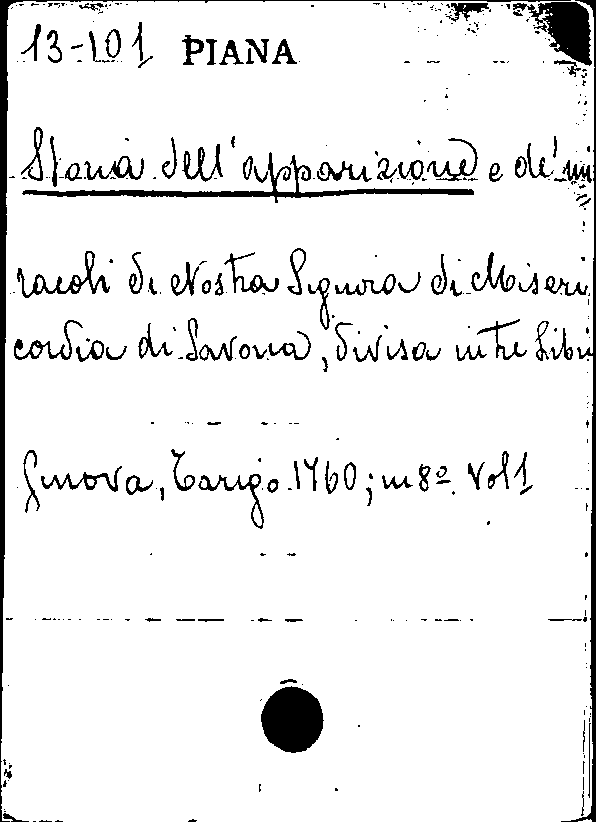 13-101 PIANA
Storia dell'apparizione e de' mi
racoli di Nostra Signora di Miseri
cordia di Savona, divisa in tre Libri
Genova, Tarigo 1760; in 8º. Vol 1